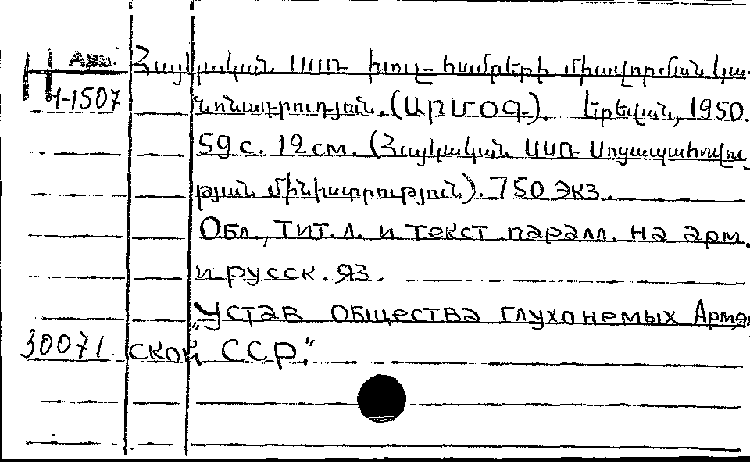 Арм. Հայկական ՍՍՌ խուլ-համրերի միավորման կա-
Ч-1507 նոնադրության. (ԱՐՄՕԳ). Երեվան, 1950.
59 с. 12 см. (Հայկական ՍՍՌ Սոցապահովու
թյան մինիստրություն). 750 экз.
Обл., тит. л. и текст паралл. на арм.
и русск. яз.
"Устав общества глухонемых Армян
30071 ской ССР."